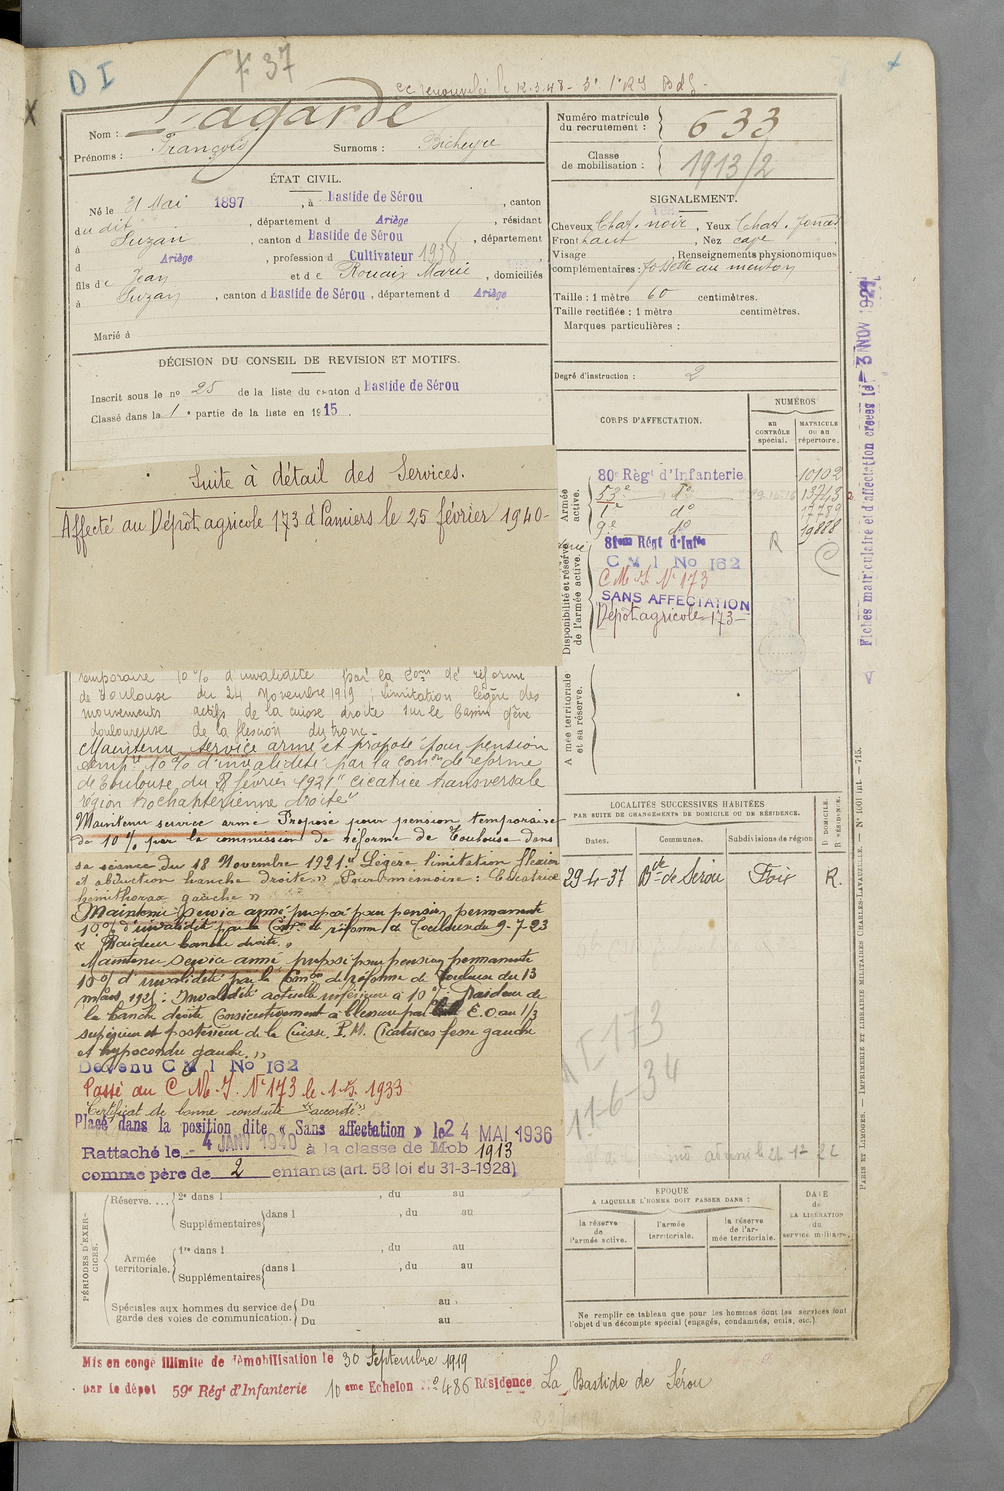 D I
F 37
cc renouvelée le 12.3.48 - 3e 1e RJ BdS -
Nom : Lagarde
Prénoms : François Surnoms : Bicheyre
Numéro matricule du recrutement : 633
Classe de mobilisation : 1913/2
ÉTAT CIVIL.
Né le 21 Mai 1897, à Bastide de Sérou, canton
du dit, département d Ariège, résidant
à Suzan, canton d Bastide de Sérou, département
d Ariège, profession d Cultivateur 1938
fils de Jean et de Rouaix Marie, domiciliés
à Suzan, canton d Bastide de Sérou, département d Ariège
Marié à
SIGNALEMENT.
Cheveux Chat. noir, Yeux Chat. foncé
Front haut, Nez cave
Visage , Renseignements physionomiques
complémentaires : fossette au menton
Taille : 1 mètre 60 centimètres.
Taille rectifiée : 1 mètre centimètres.
Marques particulières :
Degré d'instruction : 2
DÉCISION DU CONSEIL DE REVISION ET MOTIFS.
Inscrit sous le no 25 de la liste du canton d Bastide de Sérou
Classé dans la 1e partie de la liste en 1915.
Suite à détail des Services.
Affecté au Dépôt agricole 173 à Pamiers le 25 février 1940-
CORPS D'AFFECTATION.
NUMÉROS
au CONTRÔLE spécial.
MATRICULE ou au répertoire.
Armée active.
80e Régt d'Infanterie 10102
53e do 13743
1e do 17789
9e do 19888
Disponibilité et réserve de l'armée active.
81eme Régt d'Infie R
C M I No 162
C M I No 173
SANS AFFECTATION
Dépôt agricole 173-
Armée territoriale et sa réserve.
temporaire 10 % d'invalidité par la Com de réforme
de Toulouse du 24 Novembre 1919 ; limitation légère des
mouvements actifs de la cuisse droite sur le bassin gêne
douloureuse de la flexion du tronc -
Maintenu service armé et proposé pour pension
temp. 10 % d'invalidité par la comon de réforme
de Toulouse du 8 février 1921 "cicatrice transversale
région trochantérienne droite"
Maintenu service armé Proposé pour pension temporaire
de 10 % par la commission de réforme de Toulouse dans
sa séance du 18 Novembre 1921. "Légère limitation flexion
et abduction hanche droite." Pour mémoire : Cicatrice
hémithorax gauche "
Maintenu Service armé proposé pour pension permanente
10 % d'invalidité par la Comon de réforme de Toulouse du 9-7-23
" Raideur hanche droite. "
Maintenu Service armé proposé pour pension permanente
10 % d'invalidité par la Comon de réforme de Toulouse du 13
mars 1925 : Invalidité actuelle inférieure à 10 % Raideur de
la hanche droite consécutivement à blessure par E.O au 1/3
supérieur et postérieur de la Cuisse. P.M. Cicatrices fesse gauche
et hypocondre gauche. "
Devenu C M I No 162
Passé au C M. I. No 173 le 1-5. 1933
Certificat de bonne conduite "accordé"
Placé dans la position dite « Sans affectation » le 24 MAI 1936
Rattaché le - 4 JANV 1940 à la classe de Mob 1913
comme père de 2 enfants (art. 58 loi du 31-3-1928)
LOCALITÉS SUCCESSIVES HABITÉES
PAR SUITE DE CHANGEMENTS DE DOMICILE OU DE RÉSIDENCE.
Dates. Communes. Subdivisions de région D. DOMICILE. R. RÉSIDENCE.
29-4-37 Bde de Sérou Foix R.
173
11-6-34
ÉPOQUE
A LAQUELLE L'HOMME DOIT PASSER DANS :
la réserve de l'armée active.
l'armée territoriale.
la réserve de l'armée territoriale.
DATE de LA LIBÉRATION du service militaire.
Ne remplir ce tableau que pour les hommes dont les services font
l'objet d'un décompte spécial (engagés, condamnés, exclus, etc.)
PÉRIODES D'EXERCICES.
Réserve.... 2e dans l , du au
Supplémentaires dans l , du au
Armée territoriale. 1re dans l , du au
Supplémentaires dans l , du au
Spéciales aux hommes du service de garde des voies de communication. Du au
Du au
Mis en congé illimité de démobilisation le 30 Septembre 1919
par le dépôt 59e Régt d'Infanterie 10 eme Echelon No 486 Résidence La Bastide de Sérou
Fiches matriculaire et d'affectation créées le - 3 NOV 1921
PARIS ET LIMOGES. — IMPRIMERIE ET LIBRAIRIE MILITAIRES CHARLES-LAVAUZELLE. — No 1001 int. — 715.